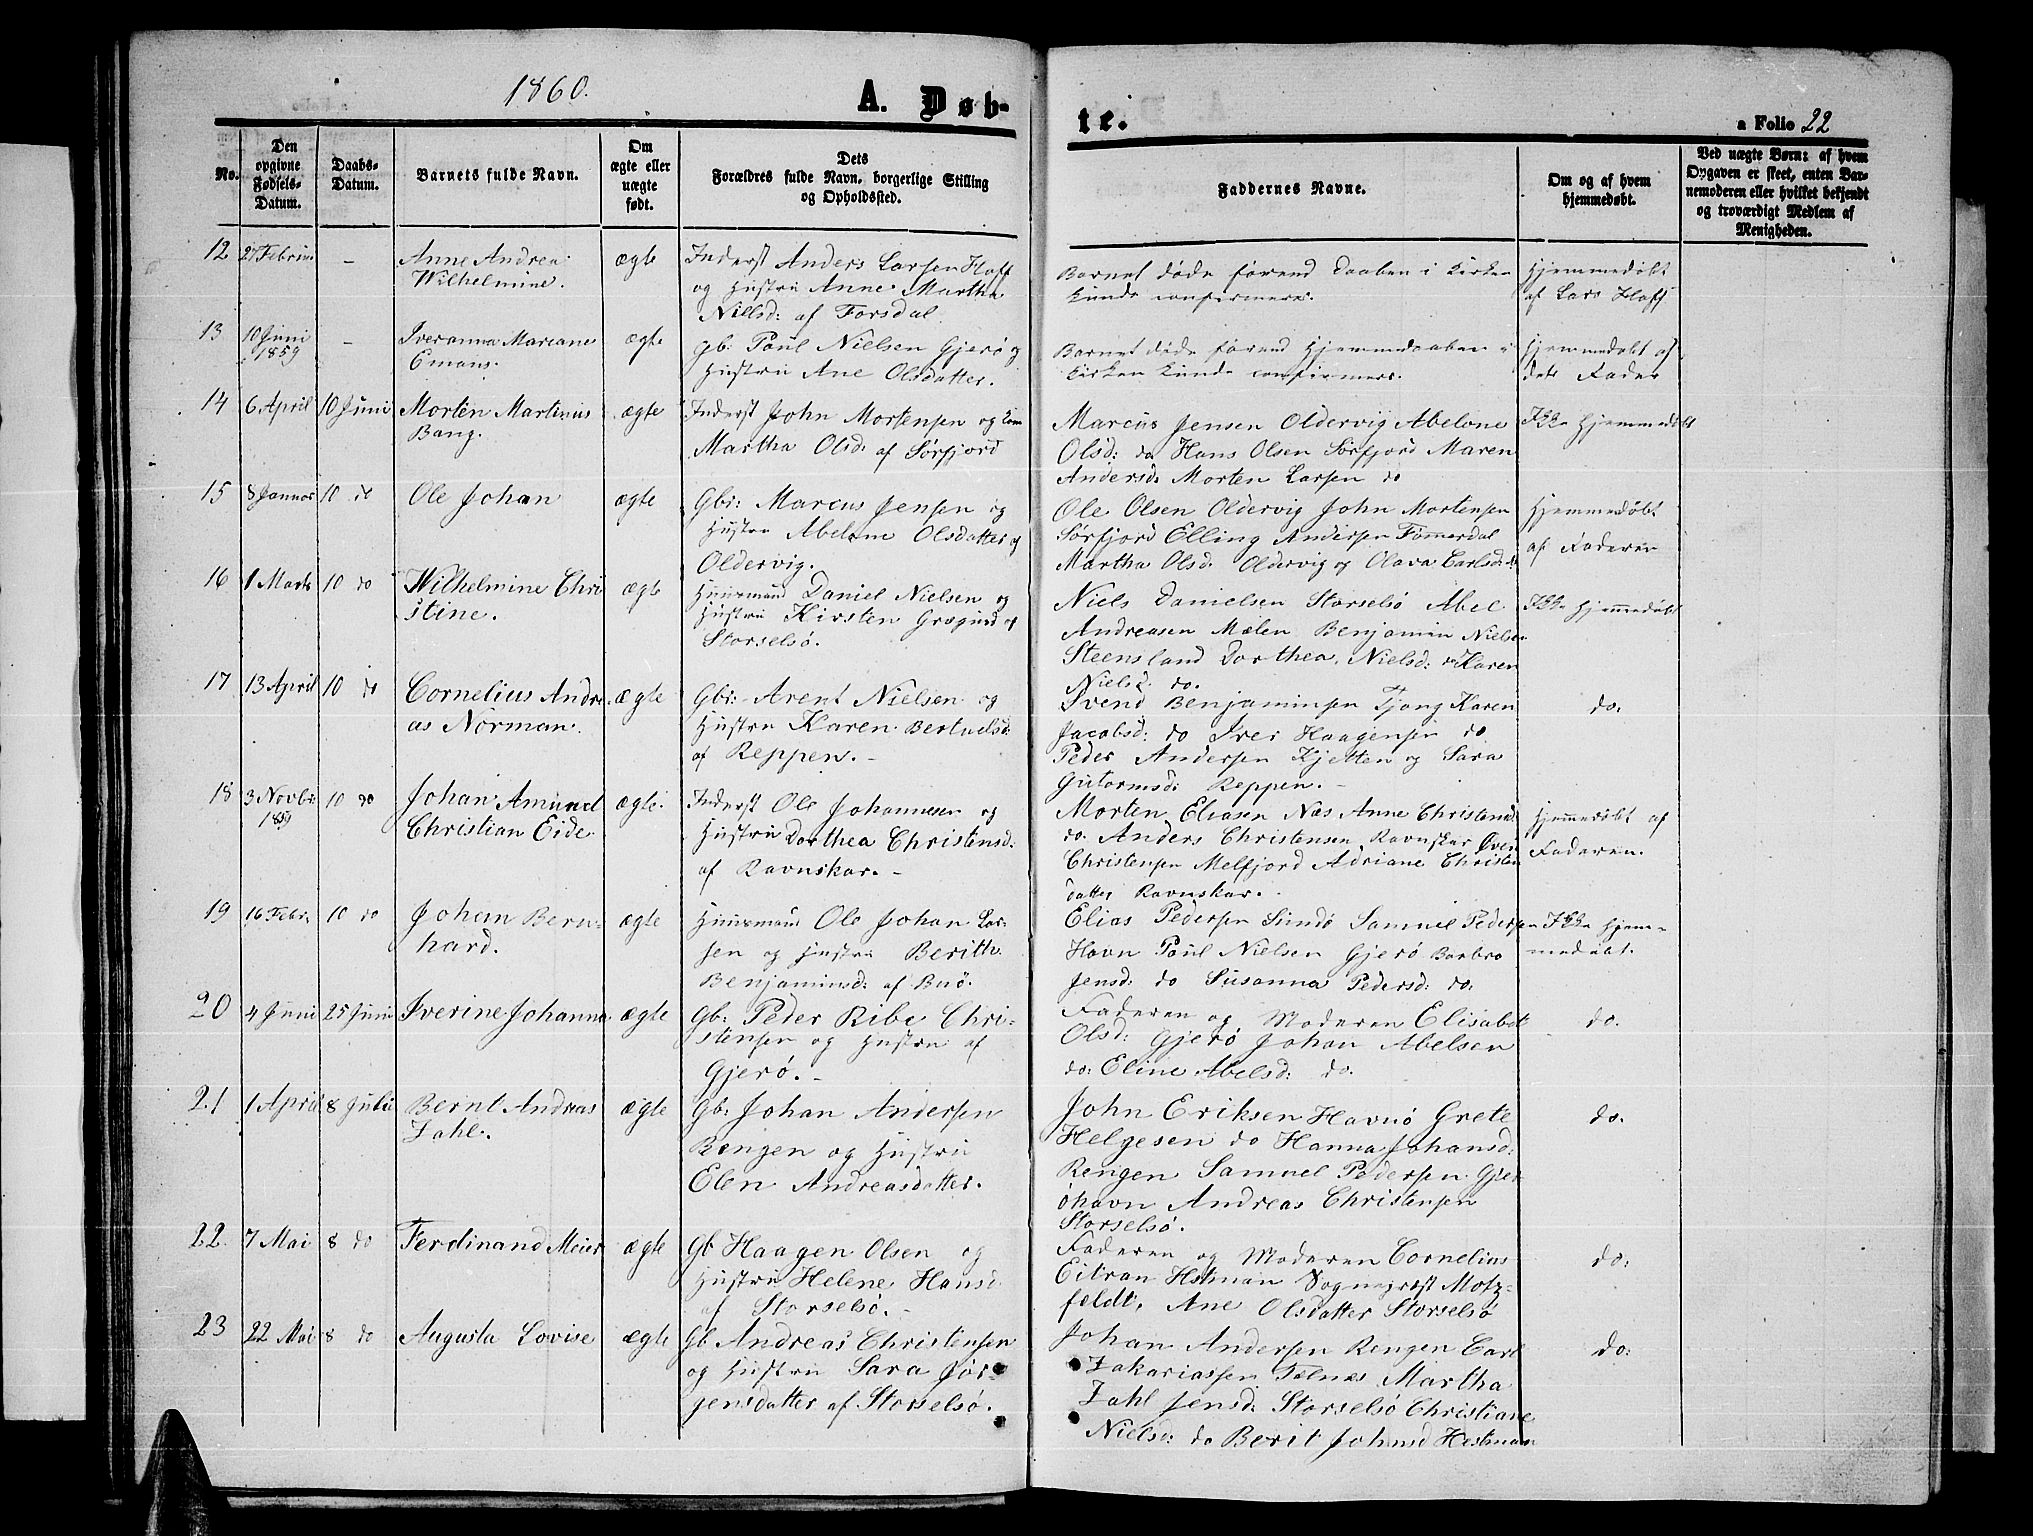 1860.
A. Døb-
te.
a Folio 22
No.
Den opgivne Fødsels-Datum.
Daabs-Datum.
Barnets fulde Navn.
Om ægte eller uægte født.
Dets Forældres fulde Navn, borgerlige Stilling og Opholdssted.
Faddernes Navne.
Om og af hvem hjemmedøbt.
Ved uægte Børn: af hvem Opgaven er skeet, enten Barnemoderen eller hvilket bekjendt og troværdigt Medlem af Menigheden.
12 27 Februar - Anne Andrea ægte Inderst Anders Larsen Hoff Barnet døde førend Daaben i Kirken Hjemmedøbt
Wilhelmine. og Hustru Anne Martha kunde confirmeres. af Lars Hoff
Nielsd: af Forsdal.
13 10 Juni - Iveranna Mariane ægte gb: Paul Nielsen Gjerø og Barnet døde førend Hjemmedaaben i Hjemmedøbt af
1859 Emans. Hustru Ane Olsdatter. Kirken kunde confirmeres. dets Fader
14 6 April 10 Juni Morten Martinus ægte Inderst John Mortensen og Kone Marcus Jensen Oldervig Abelone Ikke hjemmedøbt
Bang. Martha Olsd: af Sørfjord Olsd: do Hans Olsen Sørfjord Maren
Andersd: Morten Larsen do
15 8 Januar 10 do Ole Johan ægte Gbr: Marcus Jensen og Ole Olsen Oldervig John Mortensen Hjemmedøbt
Hustru Abelone Olsdatter af Sørfjord Elling Andersen Tømmerdal af Faderen
Oldervig. Martha Olsd: Oldervig og Olava Carlsd: do
16 1 Marts 10 do Wilhelmine Chri ægte Huusmand Daniel Nielsen og Niels Danielsen Storselsø Abel Ikke hjemmedøbt
stine. Hustru Kirsten af Andreasen Mælen Benjamin Nielsen
Storselsø. Steensland Dorthea Nielsd: do Karen
Nielsd: do.
17 13 April 10 do Cornelius Andre ægte Gbr: Arent Nielsen og Svend Benjaminsen Tjong Karen do.
as Norman. Hustru Karen Bertuelsd: Jacobsd: do Iver Haagensen do
af Reppen. - Peder Andersen Kjetten og Sara
Gutormsd: Reppen. -
18 3 Novbr 10 do Johan Amund ægte. Inderst Ole Johannesen og Morten Eliasen Næs Anne Christensd: Hjemmedøbt af
1859 Christian Eide Hustru Dorthea Christensd: do. Anders Christensen Ravnskar Faderen.
af Ravnskar. - Christensen Melfjord Adriane Christen
datter Ravnskar. -
19 16 Febr. 10 do Johan Bern- ægte Huusmand Ole Johan Lar- Elias Pedersen Sundø Samuel Pedersen Ikke hjem-
hard. sen og Hustru Berith Havn Paul Nielsen Gjerø Barbro medøbt.
Benjaminsd: af Buø. Jensd: do Susanna Pedersd: do.
20 4 Juni 25 Juni Iverine Johanna ægte Gb: Peder Ribe Chri- Faderen og Moderen Elisabet do.
stensen og Hustru af Olsd: Gjerø Johan Abelsen
Gjerø. - do: Eline Abelsd: do.
21 1 April 8 Juli Bernt Andreas ægte Gb: Johan Andersen John Eriksen Havnø Grete do.
Zahl. Rengen og Hustru Helgesen do Hanna Johansd:
Elen Andreasdatter. Rengen Samuel Pedersen Gjer
øhavn Andreas Christensen
Storselsø.
22. 7 Mai 8 do Ferdinand Meier ægte Gb Haagen Olsen og Faderen og Moderen Cornelius do:
Hustru Helene Hansd Eitran Hstman Sogneprest Motz-
af Storselsø. - feldt, Ane Olsdatter Storselsø
23 22 Mai 8 do Augusta Lovise ægte Gb Andreas Christensen Johan Andersen Rengen Carl do:
og Hustru Sara Jør- Zakariassen Telnæs Martha
gensdatter af Storselsø. Zahl Jensd: Storselsø Christiane
Nielsd: do Berit Johnsd Hestman